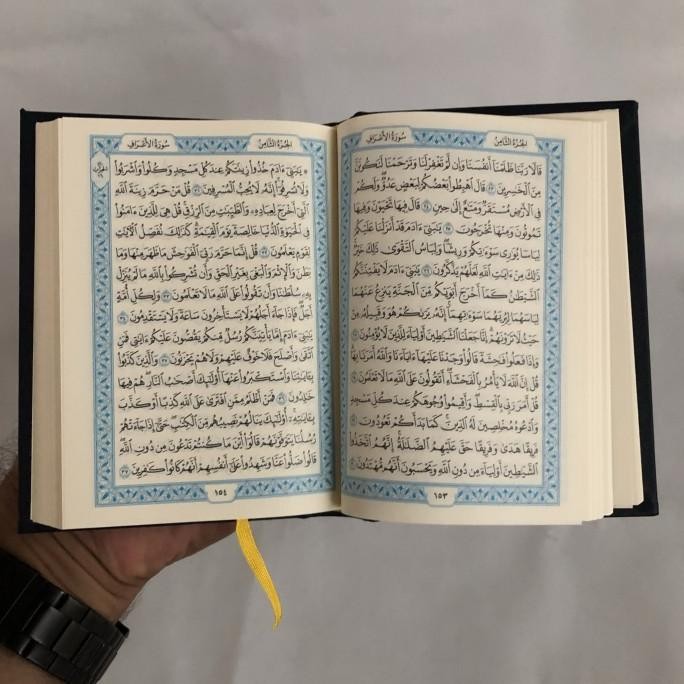 الجُزْءُ الثَّامِنُ سُورَةُ الأَعْرَافِ
قَالَا رَبَّنَا ظَلَمْنَا أَنفُسَنَا وَإِن لَّمْ تَغْفِرْ لَنَا وَتَرْحَمْنَا لَنَكُونَنَّ
مِنَ الْخَاسِرِينَ ٢٣ قَالَ اهْبِطُوا بَعْضُكُمْ لِبَعْضٍ عَدُوٌّ وَلَكُمْ
فِي الْأَرْضِ مُسْتَقَرٌّ وَمَتَاعٌ إِلَىٰ حِينٍ ٢٤ قَالَ فِيهَا تَحْيَوْنَ وَفِيهَا
تَمُوتُونَ وَمِنْهَا تُخْرَجُونَ ٢٥ يَٰبَنِي ءَادَمَ قَدْ أَنزَلْنَا عَلَيْكُمْ
لِبَاسًا يُوَٰرِي سَوْءَٰتِكُمْ وَرِيشًا وَلِبَاسُ التَّقْوَىٰ ذَٰلِكَ خَيْرٌ
ذَٰلِكَ مِنْ ءَايَٰتِ اللَّهِ لَعَلَّهُمْ يَذَّكَّرُونَ ٢٦ يَٰبَنِي ءَادَمَ لَا يَفْتِنَنَّكُمُ
الشَّيْطَٰنُ كَمَا أَخْرَجَ أَبَوَيْكُم مِّنَ الْجَنَّةِ يَنزِعُ عَنْهُمَا
لِبَاسَهُمَا لِيُرِيَهُمَا سَوْءَٰتِهِمَا إِنَّهُ يَرَىٰكُمْ هُوَ وَقَبِيلُهُ مِنْ
حَيْثُ لَا تَرَوْنَهُمْ إِنَّا جَعَلْنَا الشَّيَٰطِينَ أَوْلِيَاءَ لِلَّذِينَ لَا يُؤْمِنُونَ ٢٧
وَإِذَا فَعَلُوا فَٰحِشَةً قَالُوا وَجَدْنَا عَلَيْهَا ءَابَاءَنَا وَاللَّهُ أَمَرَنَا بِهَا
قُلْ إِنَّ اللَّهَ لَا يَأْمُرُ بِالْفَحْشَاءِ أَتَقُولُونَ عَلَى اللَّهِ مَا لَا تَعْلَمُونَ ٢٨
قُلْ أَمَرَ رَبِّي بِالْقِسْطِ وَأَقِيمُوا وُجُوهَكُمْ عِندَ كُلِّ مَسْجِدٍ
وَادْعُوهُ مُخْلِصِينَ لَهُ الدِّينَ كَمَا بَدَأَكُمْ تَعُودُونَ ٢٩
فَرِيقًا هَدَىٰ وَفَرِيقًا حَقَّ عَلَيْهِمُ الضَّلَٰلَةُ إِنَّهُمُ اتَّخَذُوا
الشَّيَٰطِينَ أَوْلِيَاءَ مِن دُونِ اللَّهِ وَيَحْسَبُونَ أَنَّهُم مُّهْتَدُونَ ٣٠
١٥٣
الجُزْءُ الثَّامِنُ سُورَةُ الأَعْرَافِ
يَٰبَنِي ءَادَمَ خُذُوا زِينَتَكُمْ عِندَ كُلِّ مَسْجِدٍ وَكُلُوا وَاشْرَبُوا
وَلَا تُسْرِفُوا إِنَّهُ لَا يُحِبُّ الْمُسْرِفِينَ ٣١ قُلْ مَنْ حَرَّمَ زِينَةَ اللَّهِ
الَّتِي أَخْرَجَ لِعِبَادِهِ وَالطَّيِّبَٰتِ مِنَ الرِّزْقِ قُلْ هِيَ لِلَّذِينَ ءَامَنُوا
فِي الْحَيَوٰةِ الدُّنْيَا خَالِصَةً يَوْمَ الْقِيَٰمَةِ كَذَٰلِكَ نُفَصِّلُ الْأَيَٰتِ
لِقَوْمٍ يَعْلَمُونَ ٣٢ قُلْ إِنَّمَا حَرَّمَ رَبِّيَ الْفَوَٰحِشَ مَا ظَهَرَ مِنْهَا وَمَا
بَطَنَ وَالْإِثْمَ وَالْبَغْيَ بِغَيْرِ الْحَقِّ وَأَن تُشْرِكُوا بِاللَّهِ مَا لَمْ يُنَزِّلْ
بِهِ سُلْطَٰنًا وَأَن تَقُولُوا عَلَى اللَّهِ مَا لَا تَعْلَمُونَ ٣٣ وَلِكُلِّ أُمَّةٍ
أَجَلٌ فَإِذَا جَاءَ أَجَلُهُمْ لَا يَسْتَأْخِرُونَ سَاعَةً وَلَا يَسْتَقْدِمُونَ ٣٤
يَٰبَنِي ءَادَمَ إِمَّا يَأْتِيَنَّكُمْ رُسُلٌ مِّنكُمْ يَقُصُّونَ عَلَيْكُمْ ءَايَٰتِي فَمَنِ
اتَّقَىٰ وَأَصْلَحَ فَلَا خَوْفٌ عَلَيْهِمْ وَلَا هُمْ يَحْزَنُونَ ٣٥ وَالَّذِينَ كَذَّبُوا
بِـَٔايَٰتِنَا وَاسْتَكْبَرُوا عَنْهَا أُولَٰئِكَ أَصْحَٰبُ النَّارِ هُمْ فِيهَا
خَٰلِدُونَ ٣٦ فَمَنْ أَظْلَمُ مِمَّنِ افْتَرَىٰ عَلَى اللَّهِ كَذِبًا أَوْ كَذَّبَ
بِـَٔايَٰتِهِ أُولَٰئِكَ يَنَالُهُمْ نَصِيبُهُم مِّنَ الْكِتَٰبِ حَتَّىٰ إِذَا جَاءَتْهُمْ
رُسُلُنَا يَتَوَفَّوْنَهُمْ قَالُوا أَيْنَ مَا كُنتُمْ تَدْعُونَ مِن دُونِ اللَّهِ
قَالُوا ضَلُّوا عَنَّا وَشَهِدُوا عَلَىٰ أَنفُسِهِمْ أَنَّهُمْ كَانُوا كَٰفِرِينَ ٣٧
١٥٤